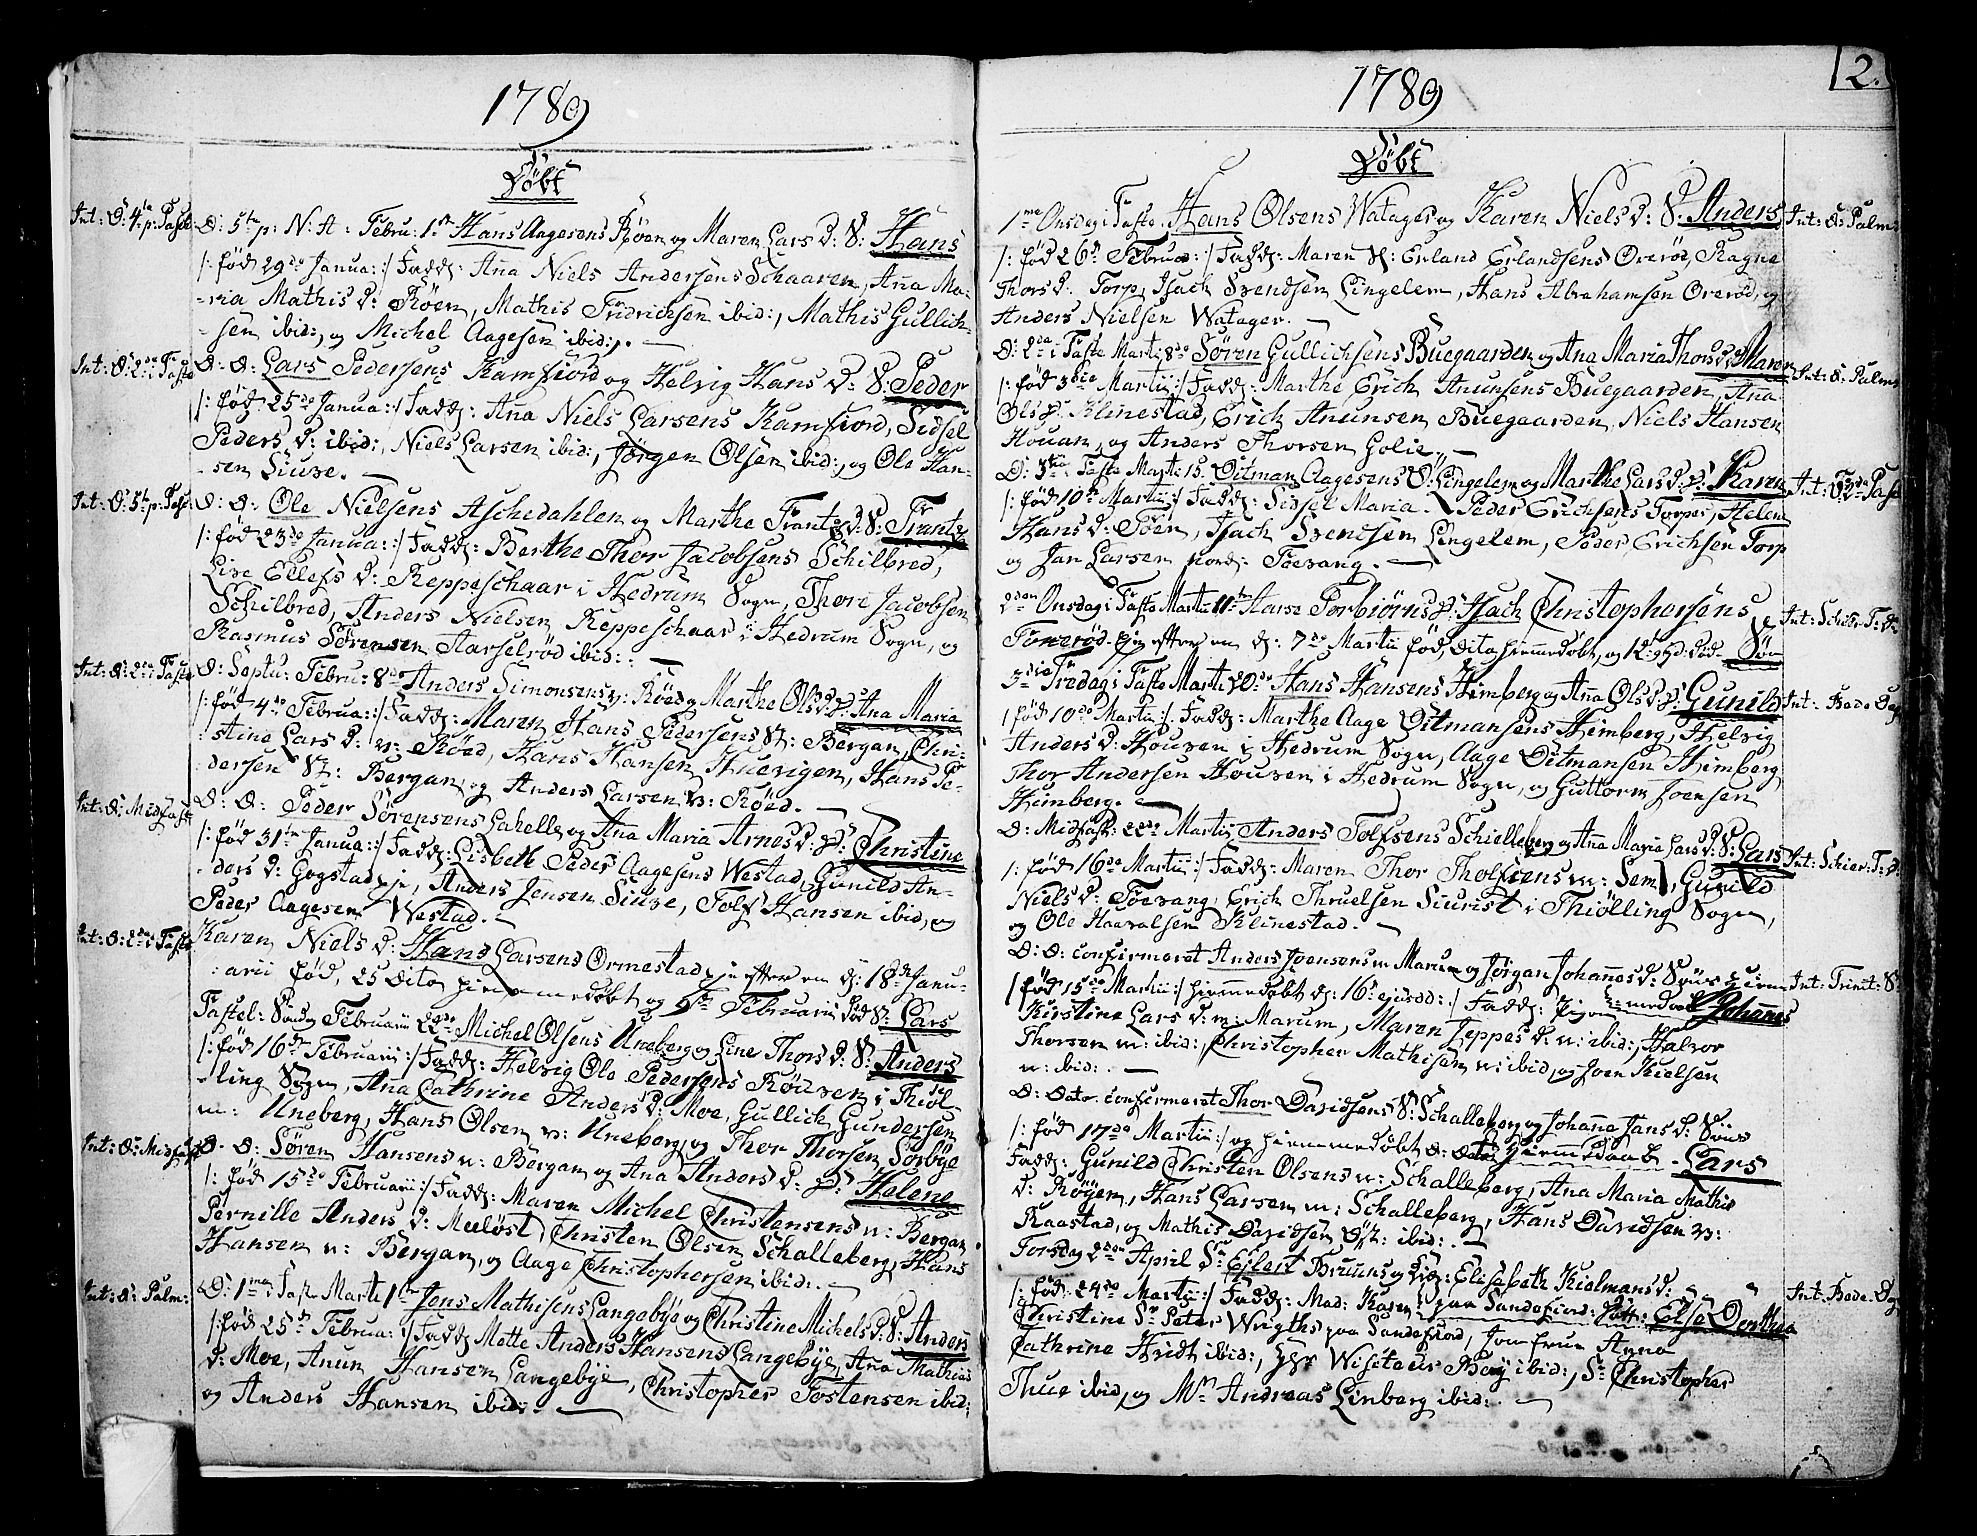 1789
Döbt
Int: D: 4de p: Pasc:
D: 5te p: N: A: Febru: 1ste Hans Aagesens Röen og Maren Lars D: S: Hans
/: föd 29de Janua: :/ Fadd: Ana Niels Andersens Schaaren, Ana Ma-
-ria Mathis D: Röen, Mathis Fridrichsen ibid:, Mathis Gullich-
-sen ibid:, og Michel Aagesen ibid:,. —
Int: D: 2de i Faste
D: D: Lars Pedersens Kamfiord og Helvig Hans D: S: Peder
/: föd 25de Janua: :/ Fadd: Ana Niels Larsens Kamfiord, Sidsel
Peders D: ibid:, Niels Larsen ibid:, Jörgen Olsen ibid:, og Ole Han-
-sen Siuve. —
Int: D: 5te p: Pasc:
D: D: Ole Nielsens Aschedahlen og Marthe Frants D: S: Frantz
/: föd 23de Janua: :/ Fadd: Berthe Thor Jacobsens Schilbred,
Lise Ellefs D: Reppeschaar i Hedrum Sogn, Thore Jacobsen
Schilbred, Anders Nielsen Reppeschaar i Hedrum Sogn, og
Rasmus Sörensen Aarselröd ibid: . —
Int: D: 2de i Faste
D: Septu: Febru: 8de Anders Simonsens v: Röed og Marthe Ols D: D: Ana Maria
/: föd 4de Februa: :/ Fadd: Maren Hans Pedersens V: Bergan, Chri-
stine Lars D: v: Röed, Hans Hansen Huevigen, Hans Pe-
dersen V: Bergan, og Anders Larsen v: Röed. —
Int: D: Midfast
D: D: Peder Sörensens Lahelle og Ana Maria Arnes D: D: Christine
/: föd 31te Janua: :/ Fadd: Lisbeth Peder Aagesens Westad, Gunild An-
-ders D: Gogstad, Anders Jensen Siuve, Tolf Hansen ibid, og
Peder Aagesen Westad. —
Int: D: 2de i Faste
Karen Niels D: Hans Larsens Ormestad pje efter en d: 18de Janu-
arii föd, 25 dito hiemmedöbt og 5te Februarii död S: Lars
Fastel: Sönd: Februarii 22de Michel Olsens Uneberg og Line Thors D: S: Anders
/: föd 16de Februarii :/ Fadd: Helvig Ole Pedersens Röusen i Thiöl-
-ling Sogn, Ana Cathrine Anders D: Moe, Gullich Gundersen
m: Uneberg, Hans Olsen v: Uneberg, og Thor Thorsen Sörbye
Int: D: Midfast
D: D: Sören Hansens v: Bergan og Ana Anders D: D: Helene
/: föd 15de Februarii :/ Fadd: Maren Michel Christensens v: Bergan,
Pernille Anders D: Meelöst, Christen Olsen Schalleberg, Hans
Hansen v: Bergan, og Aage Christophersen ibid: . —
Int: D: Palm:
D: 1me i Faste Marti 1te Jens Mathisens Langebye og Christine Michels D: S: Anders
/: föd 25de Februa: :/ Fadd: Mette Anders Hansens Langebye, Ana Mathis
D: Moe, Anun Hansen Langebye, Christopher Tostensen ibid:,
og Anders Hansen ibid: . —
1789
2.
Döbt
1me Onsdag i Faste Hans Olsens Watager og Karen Niels D: S: Anders
Int: D: Palm:
/: föd 26de Februa: :/ Fadd: Maren V: Erland Erlandsens Overöd, Ragne
Thors D: Torp, Isach Svendsen Lingelem, Hans Abrahamsen Overöd, og
Anders Nielsen Watager. —
D: 2de i Faste Marti 8de Sören Gullichsens Buegaarden og Ana Maria Thors D: D: Maren
Int: D: Palm:
/: föd 3die Martii :/ Fadd: Marthe Erich Anunsens Buegaarden, Ana
Ols D: Klinestad, Erich Anunsen Buegaarden, Niels Hansen
Houan, og Anders Thorsen Golie. —
D: 3die i Faste Marti 15. Ditman Aagesens D: Lingelem og Marthe Lars D: D: Karen
/: föd 10de Martii :/ Fadd: Sidsel Maria Peder Erichsens Torpes, Helene
Hans D: Töen, Isach Svendsen Lingelem, Peder Erichsen Torp
og Jan Larsen nord: Töevang. —
2den Onsdag i Faste Marti 11te Aarse Torbiörns D: Isach Christophersens
Int: Schier: T: D:
Töneröd pje efter en d: 7de Martii föd, dito hiemmedöbt, og 12: ejusd: död Sön
3die Fredag i Faste Marti 20de Hans Hansens Himberg og Ana Ols D: D: Gunild
Int: Bede Dag
/: föd 10de Martii :/ Fadd: Marthe Aage Ditmansens Himberg, Helvig
Anders D: Housen i Hedrum Sogn, Aage Ditmansen Himberg,
Thor Andersen Housen i Hedrum Sogn, og Guttorm Joensen
Himberg. —
D: Midfast: 22de Martii Anders Tolfsens Schielleberg og Ana Maria Lars D: S: Lars
Int: Schier: T: D:
/: föd 16de Martii :/ Fadd: Maren Thor Tholfsens m: Sem, Gunild
Niels D: Töevang, Erich Thruelsen Siurist i Thiölling Sogn,
og Ole Haavalsen Klinestad. —
D: D: confirmeret Anders Joensens m Marum og Jörgan Johannes D: Söns
Int: Trinit: S:
/: föd 15de Martii :/ hiemmedöbt d: 16de ejusdd: :/ Fadd: Johannes
Kirstine Lars D: m: Marum, Maren Jeppes D: v: ibid:, Halvor
Thorsen v: ibid:, Christopher Mathisen v: ibid, og Joen Kielsen
v: ibid: . —
D: Dato confirmeret Thor Davidsens S: Schalleberg og Johanna Jans D: Söns
/: föd 17de Martii :/ og hiemmedöbt d: dato hiemedaab - Lars
Fadd: Gunild Christen Olsens v: Schalleberg, Ana Maria Mathis
D: Röyen, Hans Larsen m: Schalleberg, Hans Davidsen v:
Raastad, og Mathis Davidsen Öst: ibid: . —
Torsdag 2den April Sr Ejlert Bruuns og Elisabeth Kielmans D:
paa Sandefiord: Dott: Else Dorthea
Int: Bede Dag
/: föd 24de Martii :/ Fadd: Mad: Karen
Christine Sr Peter Wrigths paa Sandefiord, Jomfrue Anna
Cathrine Hvidt ibid:, Hr Wisiteur Bay ibid:, Sr Christopher
Thue ibid, og Mr Andreas Linberg ibid: . —